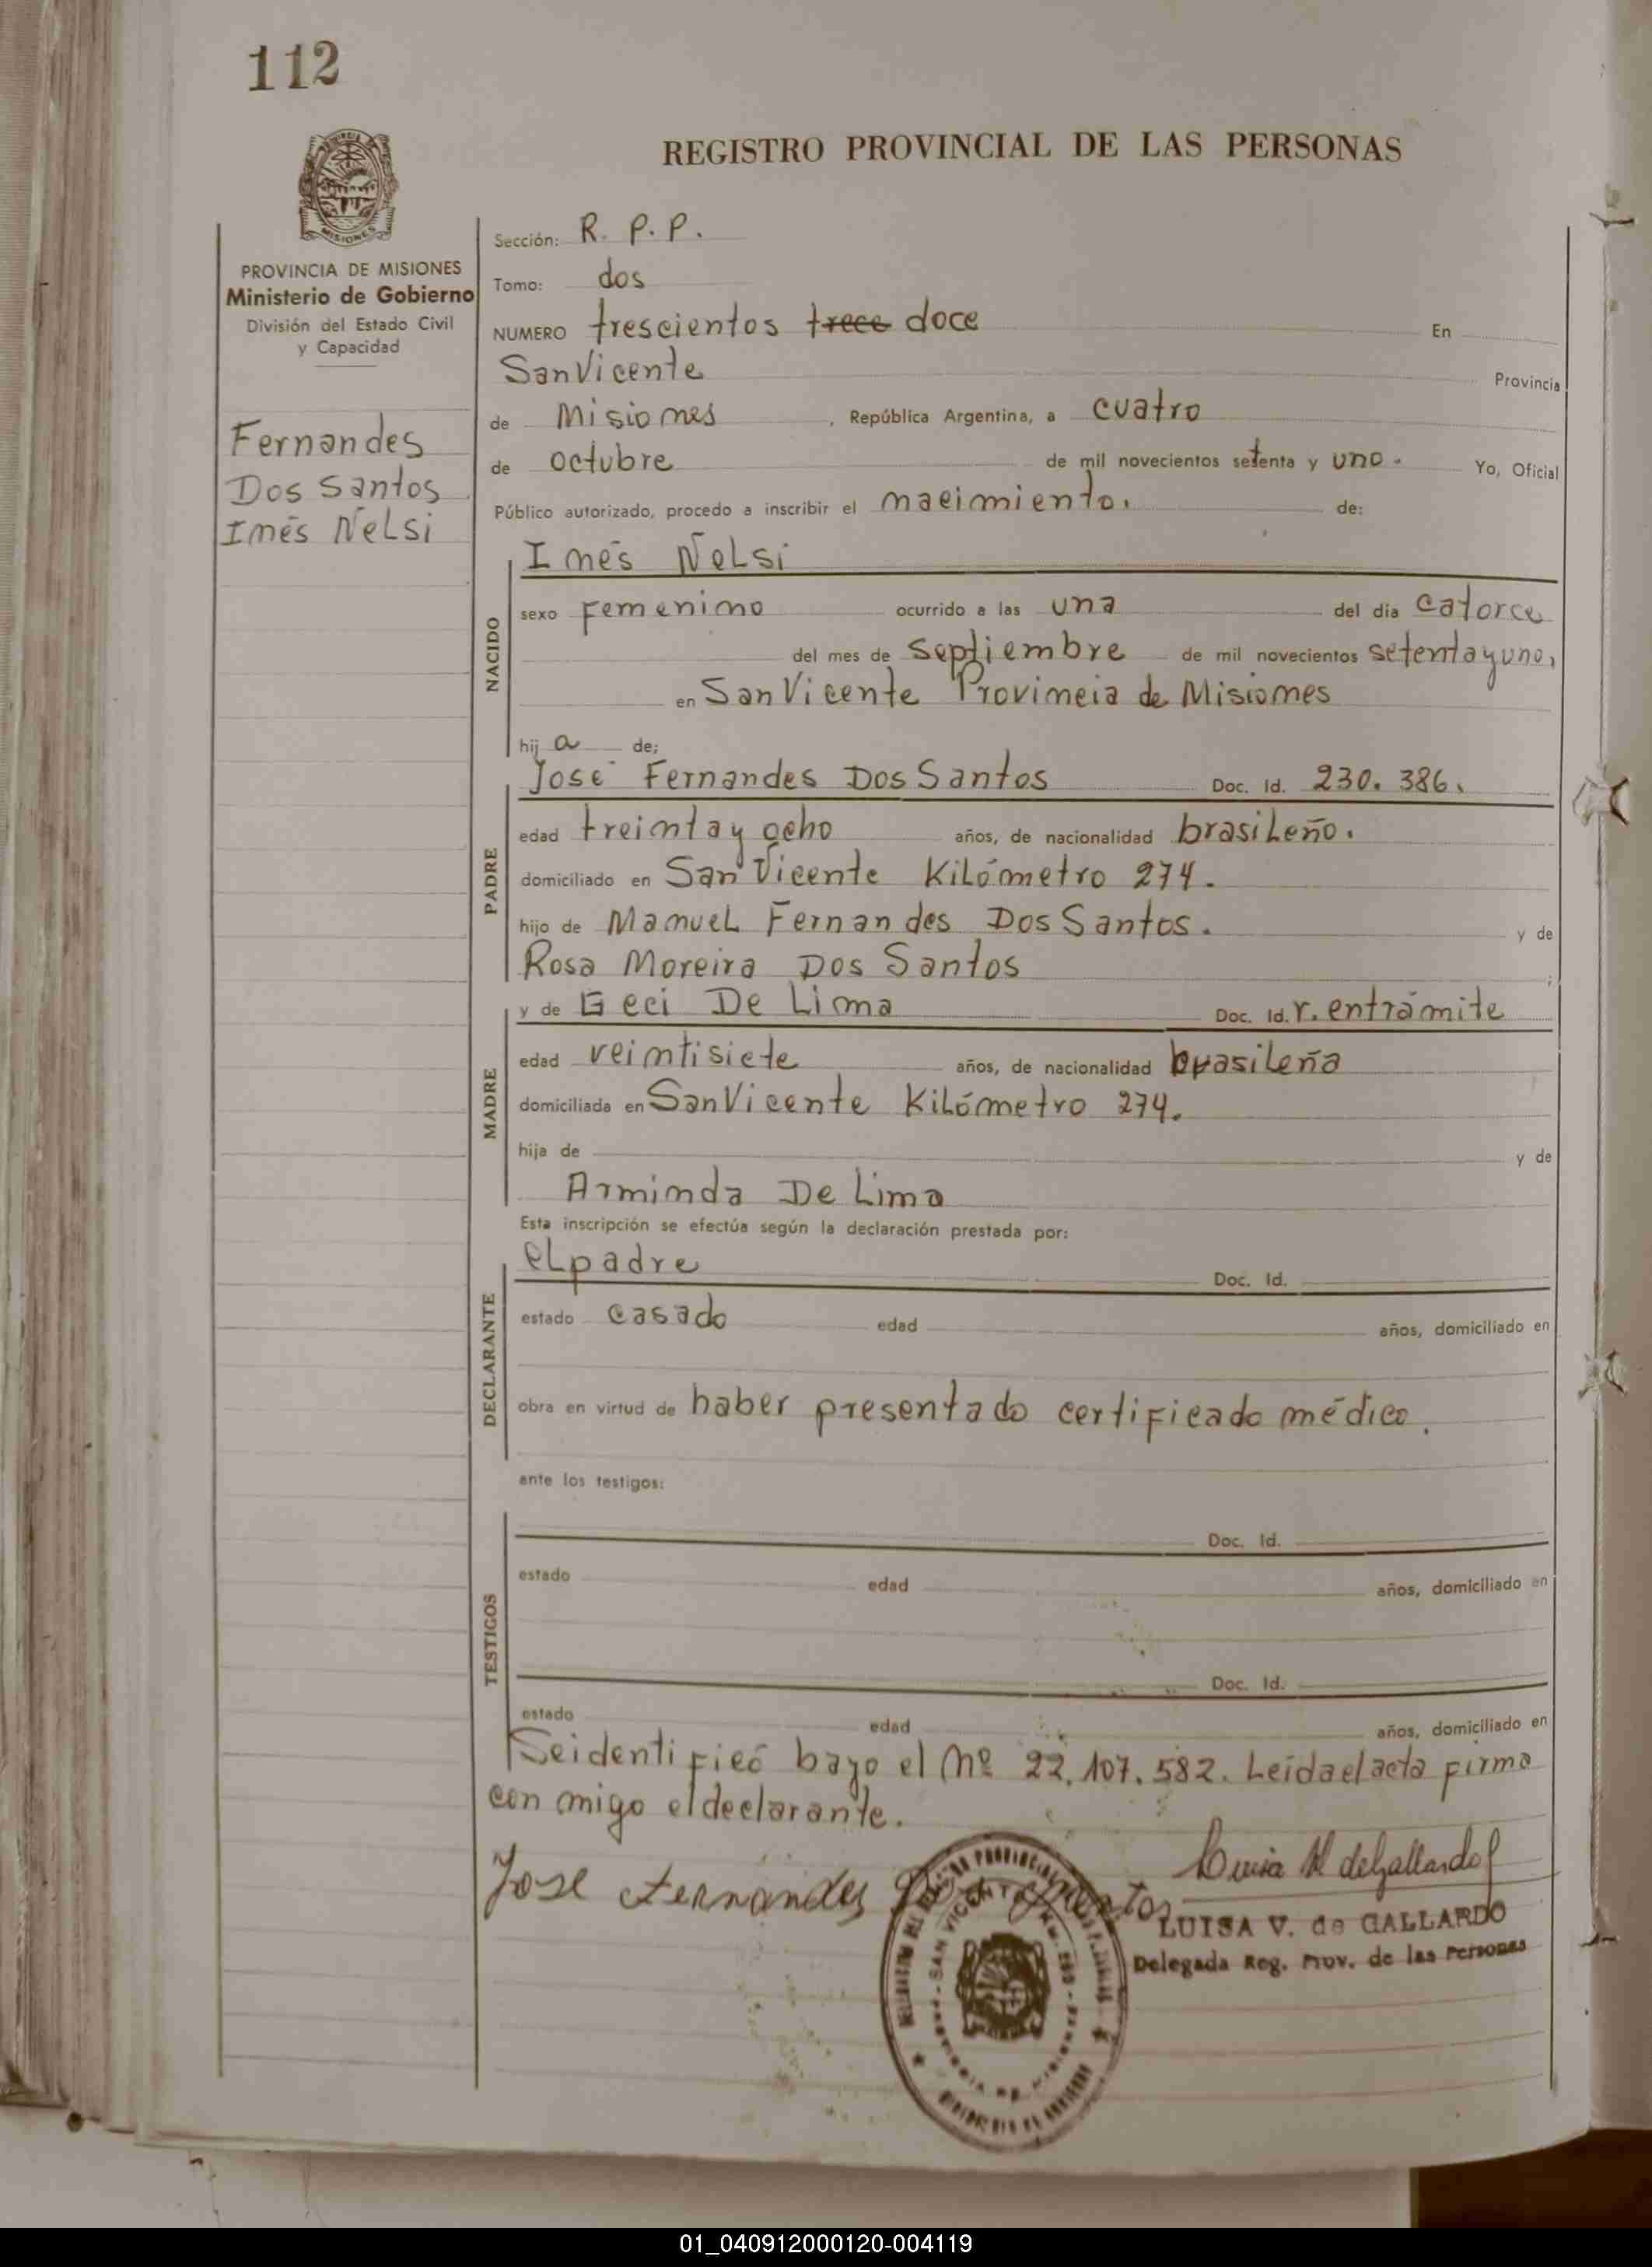 112
REGISTRO PROVINCIAL DE LAS PERSONAS
MISIONES
PROVINCIA DE MISIONES
Ministerio de Gobierno
División del Estado Civil
y Capacidad
Fernandes
Dos Santos
Inés Nelsi
Sección: R. P. P.
Tomo: dos
NUMERO trescientos trece doce En
San Vicente Provincia
de Misiones, República Argentina, a cuatro
de octubre de mil novecientos setenta y uno. Yo, Oficial
Público autorizado, procedo a inscribir el nacimiento. de:
NACIDO
Inés Nelsi
sexo femenino ocurrido a las una del día catorce
del mes de septiembre de mil novecientos setenta y uno,
en San Vicente Provincia de Misiones
hij a de;
PADRE
José Fernandes Dos Santos Doc. Id. 230.386.
edad treinta y ocho años, de nacionalidad brasileño.
domiciliado en San Vicente Kilómetro 274.
hijo de Manuel Fernandes Dos Santos. y de
Rosa Moreira Dos Santos ;
MADRE
y de Geci De Lima Doc. Id. r. en trámite
edad veintisiete años, de nacionalidad brasileña
domiciliada en San Vicente Kilómetro 274.
hija de y de
Arminda De Lima
Esta inscripción se efectúa según la declaración prestada por:
DECLARANTE
el padre Doc. Id.
estado casado edad años, domiciliado en
obra en virtud de haber presentado certificado médico.
ante los testigos:
TESTIGOS
Doc. Id.
estado edad años, domiciliado en
Doc. Id.
estado edad años, domiciliado en
Se identificó bayo el Nº 22.107.582. Leída el acta firma
con migo el declarante.
Jose Fernandes Dos Santos
LUISA V. de GALLARDO
Delegada Reg. Prov. de las Personas
SAN VICENTE
01_040912000120-004119